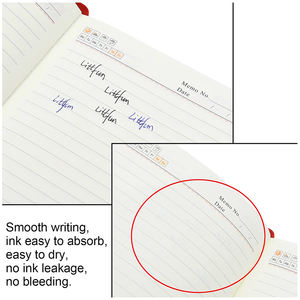 Littfun
Memo No.
Littfun
Date
Littfun
Littfun
Littfun
Memo No.
Date
Smooth writing,
ink easy to absorb,
easy to dry,
no ink leakage,
no bleeding.